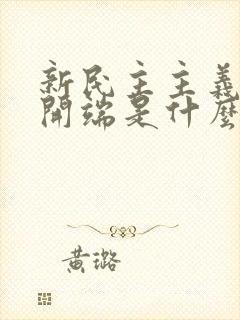 新民主主義
開端是什麼
黃璐